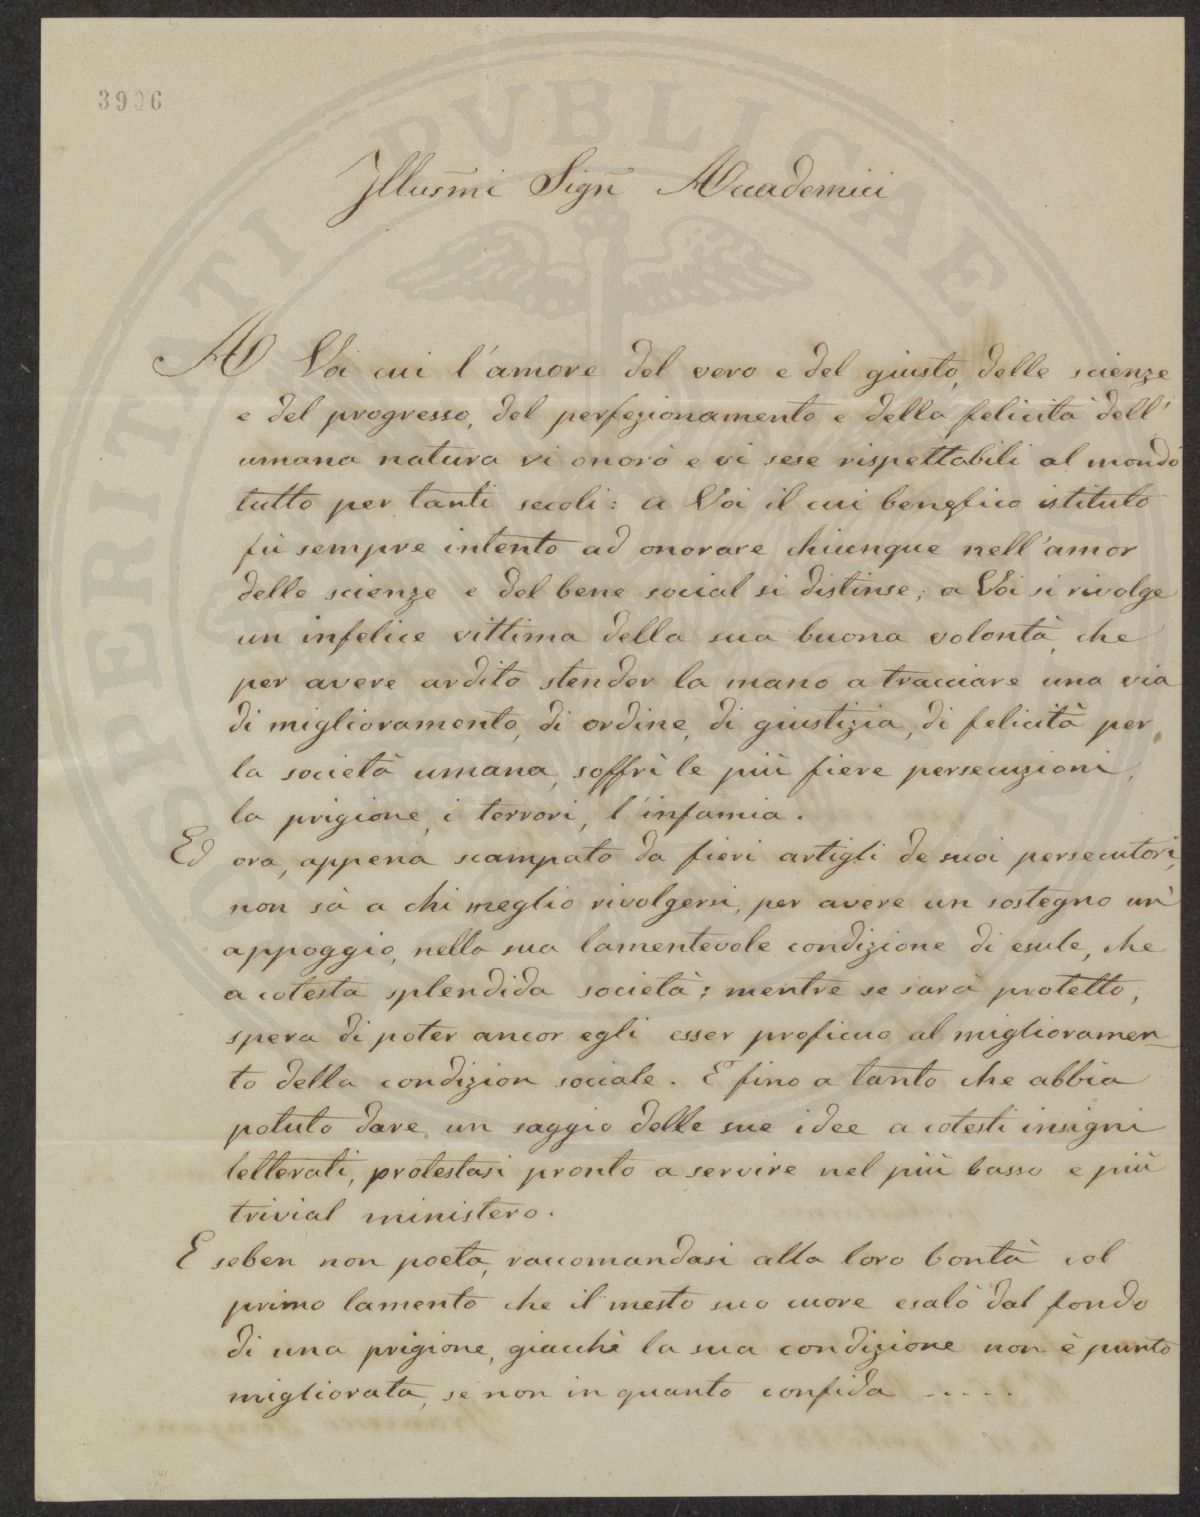 3906
Illusm̃i Sigñ Accademici
A Voi cui l'amore del vero e del giusto, delle scienze
e del progresso, del perfezionamento e della felicità dell'
umana natura vi onorò e vi rese rispettabili al mondo
tutto per tanti secoli: a Voi il cui benefico istituto
fù sempre intento ad onorare chiunque nell'amor
delle scienze e del bene social si distinse; a Voi si rivolge
un infelice vittima della sua buona volontà, che
per avere ardito stender la mano a tracciare una via
di miglioramento, di ordine, di giustizia, di felicità per
la società umana, soffrì le più fiere persecuzioni,
la prigione, i terrori, l'infamia.
Ed ora, appena scampato da fieri artigli de suoi persecutori,
non sà a chi meglio rivolgersi, per avere un sostegno un'
appoggio, nella sua lamentevole condizione di esule, che
a cotesta splendida società; mentre se sarà protetto,
spera di poter ancor egli esser proficuo al miglioramen
to della condizion sociale. E fino a tanto che abbia
potuto dare un saggio delle sue idee a cotesti insigni
letterati, protestasi pronto a servire nel più basso e più
trivial ministero.
E seben non poeta, raccomandasi alla loro bontà col
primo lamento che il mesto suo cuore esalò dal fondo
di una prigione, giacchè la sua condizione non è punto
migliorata, se non in quanto confida .....
PUBLICAE